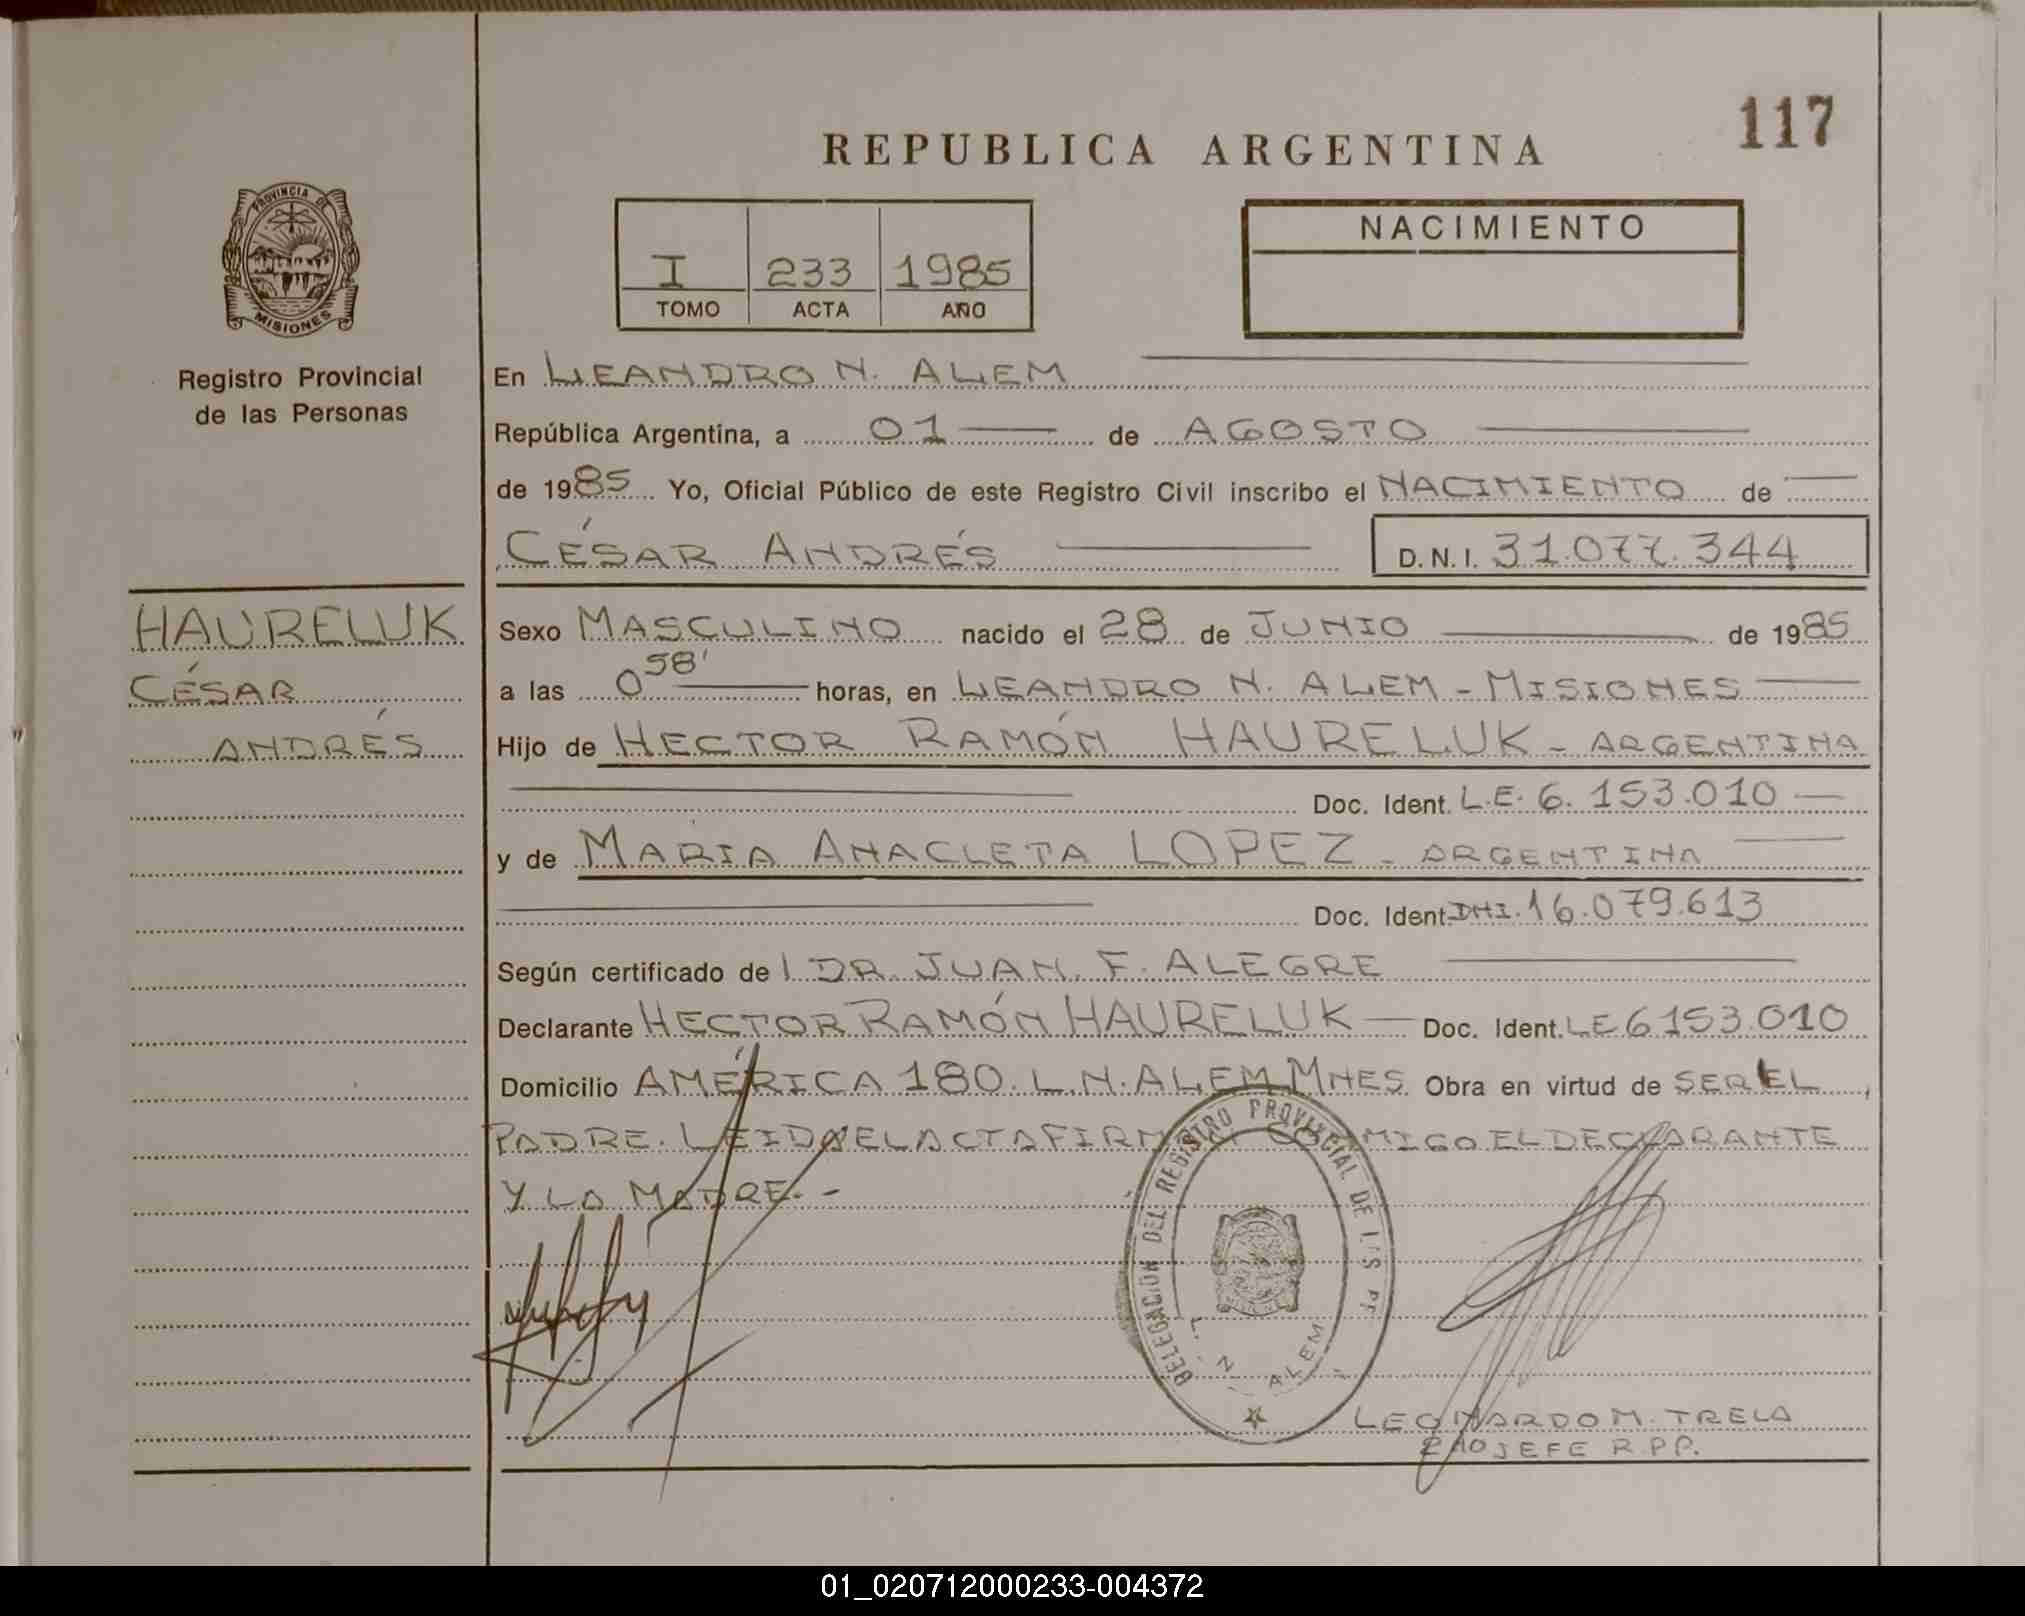 117
REPUBLICA ARGENTINA
PROVINCIA DE
MISIONES
Registro Provincial
de las Personas
I 233 1985
TOMO ACTA AÑO
NACIMIENTO
En LEANDRO N. ALEM
República Argentina, a 01 de AGOSTO
de 1985 Yo, Oficial Público de este Registro Civil inscribo el NACIMIENTO de
CÉSAR ANDRÉS D.N.I. 31.077.344
HAURELUK
CÉSAR
ANDRÉS
Sexo MASCULINO nacido el 28 de JUNIO de 1985
a las 0 58' horas, en LEANDRO N. ALEM - MISIONES
Hijo de HECTOR RAMÓN HAURELUK - ARGENTINA
Doc. Ident. L.E. 6.153.010
y de MARIA ANACLETA LOPEZ - ARGENTINA
Doc. Ident. DNI. 16.079.613
Según certificado de l DR. JUAN F. ALEGRE
Declarante HECTOR RAMÓN HAURELUK Doc. Ident. LE 6.153.010
Domicilio AMÉRICA 180. L.N. ALEM MNES. Obra en virtud de SER EL
PADRE. LEIDA EL ACTA FIRMAN CONMIGO EL DECLARANTE
Y LA MADRE. -
DELEGACION DEL REGISTRO PROVINCIAL DE LAS PE
L. N. ALEM
LEONARDO M. TRELA
2DO JEFE R.P.P.
01_020712000233-004372